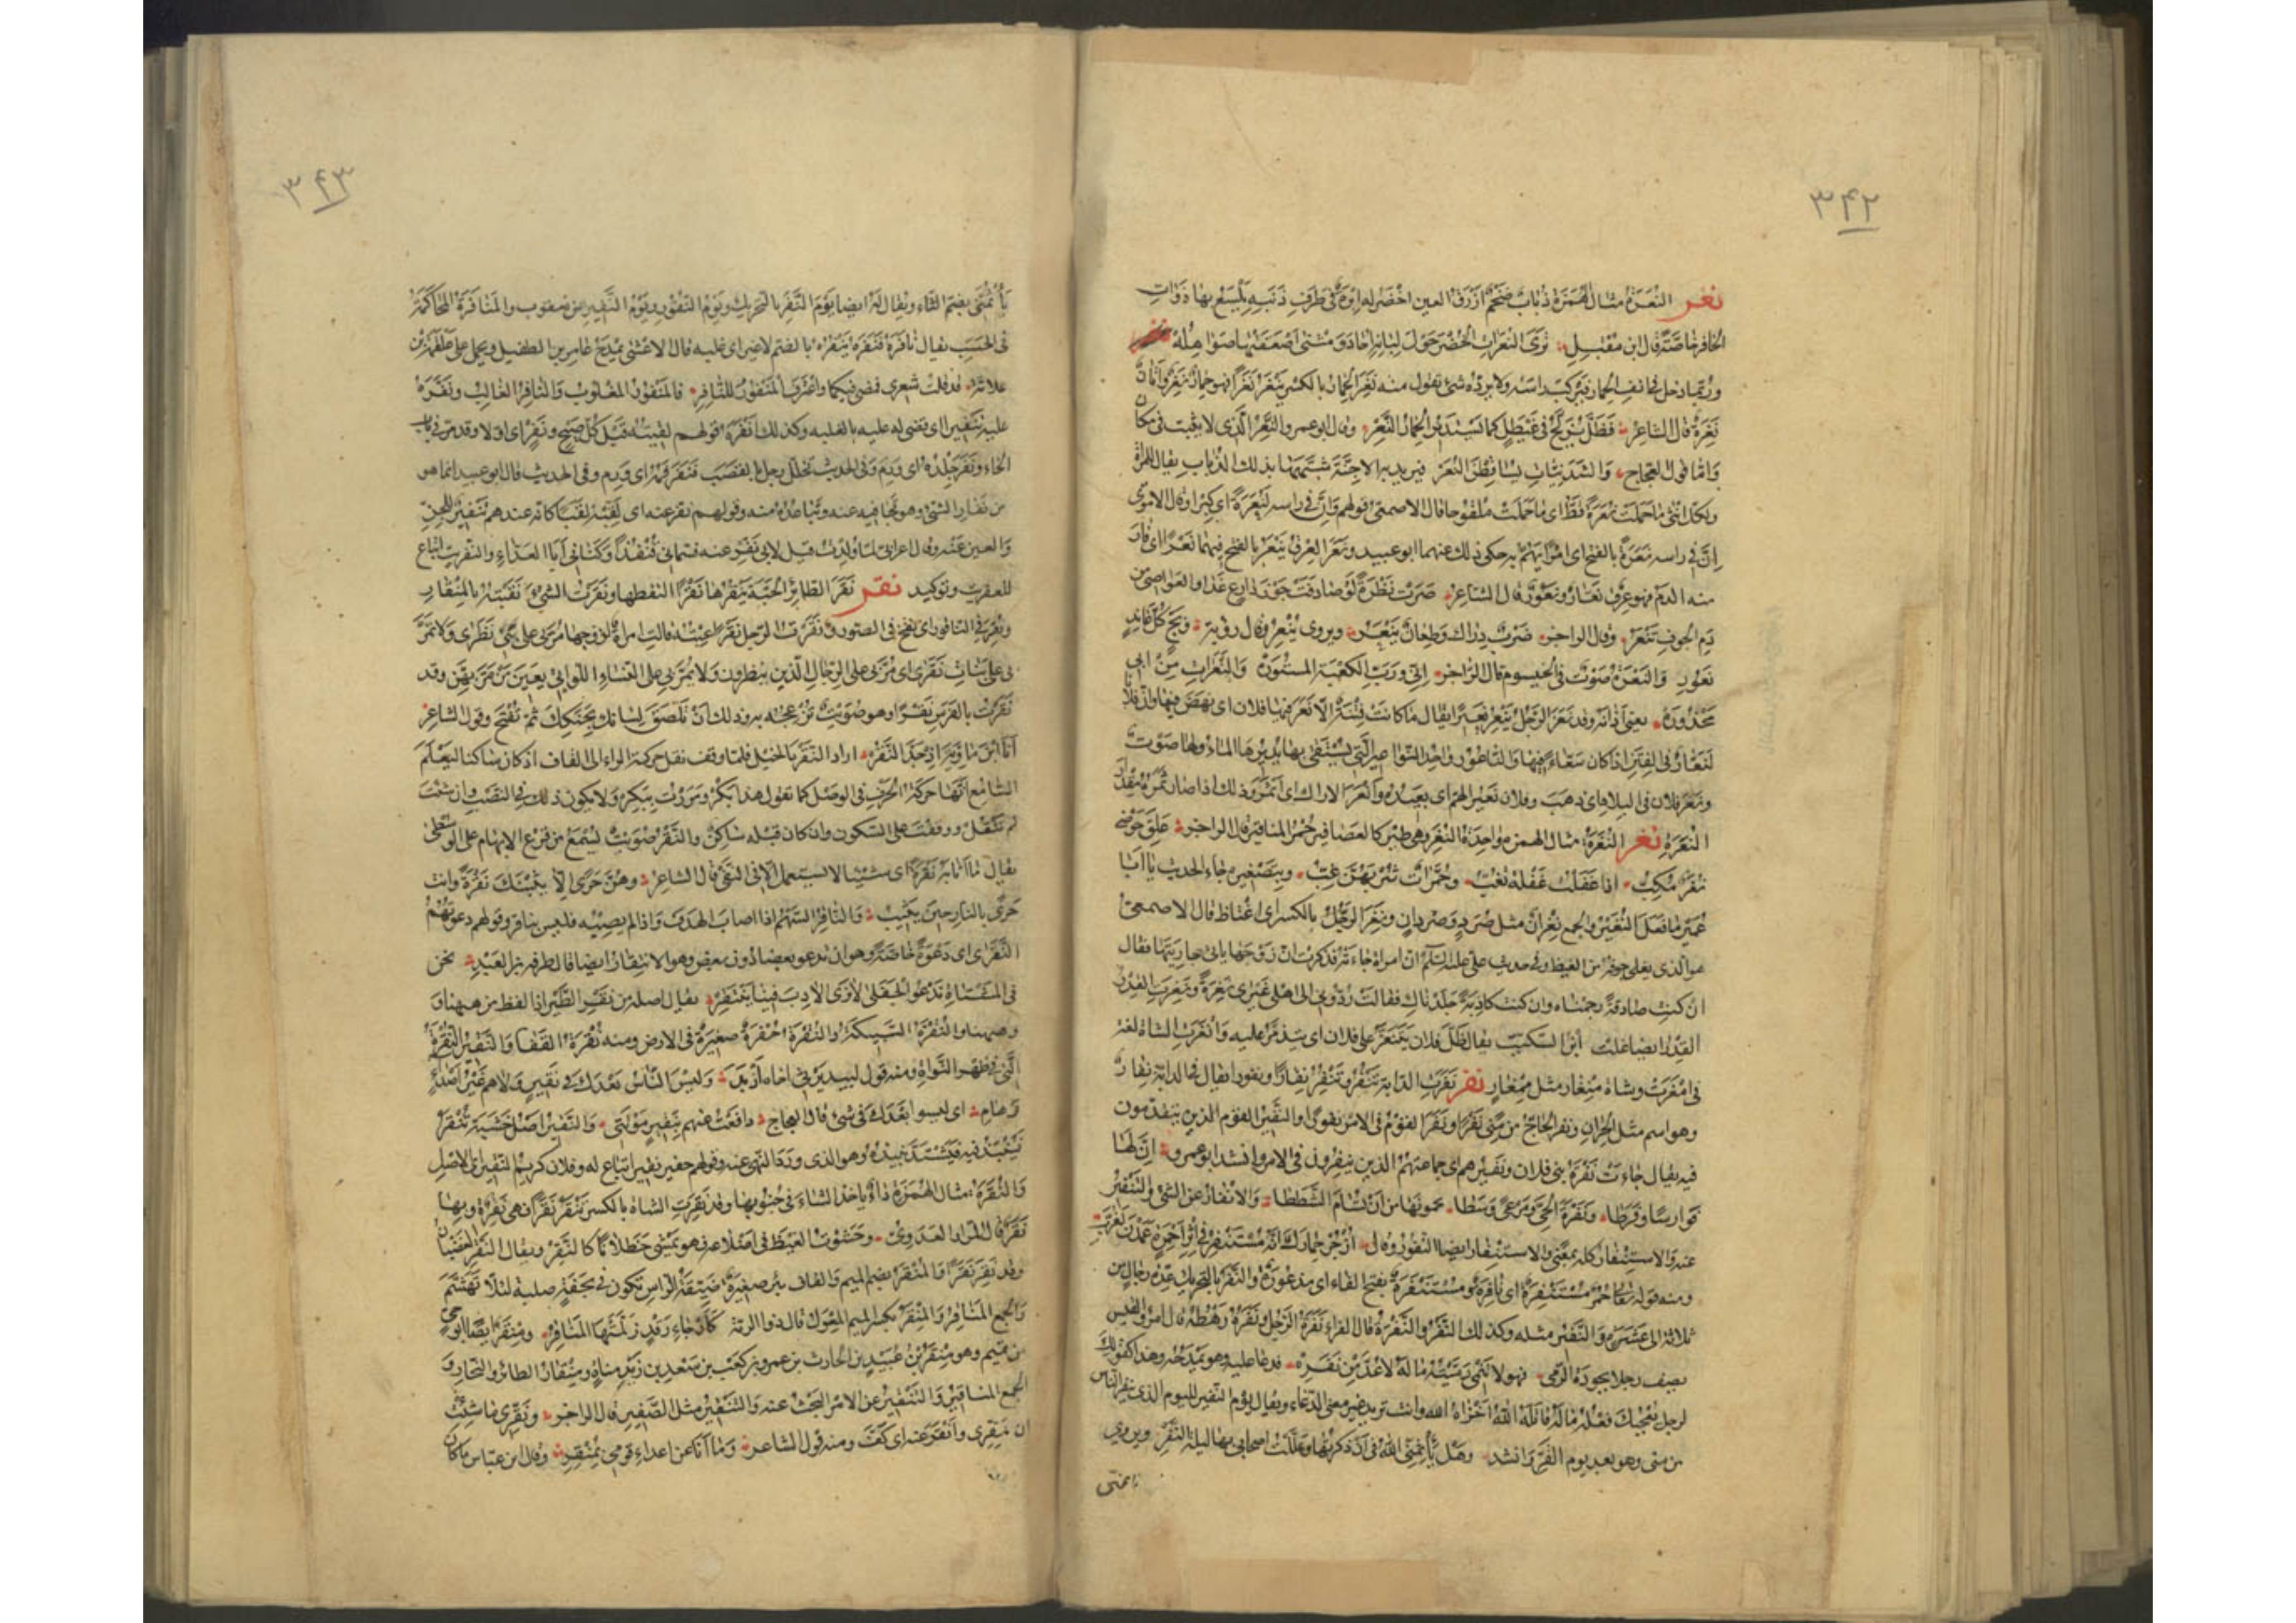 ٣۴٢
نعر النُعَرَةُ مثال الهُمَزَة ذُبابٌ ضَخْمٌ ازْرَقُ العين اخْضَرُ له اِبْرَةٌ فى طَرَفِ ذَنَبِه يَلْسَعُ بها ذَوَاتِ
الحافر خاصّةً قال ابن مُقْبِل تَرَى النُعَراتِ الخُضْرَ حَوْلَ لَبانِه اُحادَ ومَثْنَى اَصْعَقَتْها صَوَاهِلُهْ
ورُبّما دخل فى انف الحمار فيركب راسَه ولا يردّه شئ تقول منه نَعِرَ الحمارُ بالكسر يَنْعَرُ نَعَراً فهو حمارٌ نَعِرٌ واَتانٌ
نَعِرَةٌ قال الشاعر فَظَلَّ يُرَنِّحُ فى غَيْطَلٍ كما يَسْتَدِيرُ الحمارُ النَعِرْ وقال ابو عمرو النَعِرُ الّذى لا يثبت فى مكان
وَامّا قول العجاج والشَدَنِيّاتِ يُساقِطْنَ النُعَرْ فيريد به الاجِنّةَ شَبَّهَها بذلك الذُباب يقال للمرأة
ولكلّ انثى ما حَمَلَتْ نُعَرَةً قَطُّ اى ما حَمَلَتْ مَلْقُوحا قال الاصمعى قولهم وَاِنَّ فى راسه لَنُعَرَةً اى كِبْرا وقال الاموى
اِنَّ فى راسه نَعَرَةً بالفتح اى امْراً يَهُمُّ به حكى ذلك عنهما ابو عبيد ونَعَرَ العِرْقُ يَنْعَرُ بالفتح فيهما نَعْراً اى فار
منه الدم فهو عِرْقٌ نَعّارٌ ونَعُورٌ قال الشاعر صَرَتْ نَظْرَةً لَوْ صادَفَتْ جَوْزَ دارِعٍ غَدا والعَواصِى من
دَمِ الجوف تَنْعَرُ وقال الراجز ضَرْبٌ دِراكٌ وطِعانٌ يَنْعَرُ ويروى يَنْعِرُ وقال رؤبة وبَجَّ كُلَّ عانِدٍ
نَعُورِ والنَعْرَةُ صَوْتٌ فى الخيشوم قال الراجز اِنّى ورَبِّ الكعبة المستورَهْ والنَعَراتِ مِنْ ابى
مَحْذُورَهْ يعنى اَذانَه وقد نَعَرَ الرَجُلُ يَنْعِرُ نَعِيرًا يقال ما كانت فِتْنَةٌ الّا نَعَرَ فيها فلان اى نهض فيها وانّ فلانا
لَنَعّارٌ فى الفِتَن اذا كان سَعّاءً فيها والناعُورُ واحد النَواعِير الّتى يُسْتَقَى بها يديرها الماء ولها صَوْت
ونَعَرَ فلان فى البلاد اى ذهب وفلان نَعِيرُ الهمّ اى بعيده وَاَنْعَرَ الاراكُ اى اَثْمَرَ وذلك اذا صار ثَمَرُه مِقْدارَ
النُعَرَةِ نغر النُغَرَةُ مثال الهمزة واحدة النُغَر وهى طير كالعصافير حُمْر المناقير قال الراجز عَلِقَ حَوْضِى
نُغَرٌ مُكِبُّ اذا غَفَلْتُ غَفْلَةً يَعُبُّ وحُمَّراتٌ شُرْبُهُنَّ غِبُّ وبتصغيره جاء الحديث يا ابا
عُمَيْر ما فَعَلَ النُغَيْر والجمع نِغْرانٌ مثل صُرَدٍ وصِرْدانٍ ونَغِرَ الرَجُلُ بالكسر اى اغْتاظ قال الاصمعى
هو الّذى يغلى جوفه من الغيظ وفى حديث علىّ عليه السَلَم انّ امرأة جاءته فذكرت انّ زوجها ياتى جاريتها فقال
ان كنتِ صادقةً رجمناه وان كنتِ كاذبةً جَلَدْناكِ فقالت رُدّونى الى اهلى غَيْرَى نَغِرَةً ونَغِرَتِ القِدْر
القِدْرُ ايضا غلت ابن السكيت يقال ظَلَّ فلان يَتَنَغَّرُ على فلان اى يتذمّر عليه وَانْغَرَتِ الشاة لغة
فى امْغَرَتْ وشاة مِنْغار مثل مِمْغار نفر نَفَرَتِ الدّابّة تَنْفِرُ وتَنْفُرُ نِفارًا ونُفورًا يقال فى الدابّة نِفارٌ
وهو اسم مثل الحِران ونفر الحاجّ من مِنًى نَفْرًا ونَفَرَ القوم فى الامر نفورًا والنَفِيرُ القوم الذين يتقدّمون
فيه يقال جاءت نَفْرَةُ بنى فلان ونَفِيرُهم اى جماعتهم الذين ينفرون فى الامر وانشد ابو عمرو اِنَّ لَها
فَوارِسًا وفَرَطا ونَفْرَةَ الحَىِّ ومَرْعًى وَسَطا يحمونها من اَنْ تُسامَ الشَطَطا والانفار عن الشئ والتَنْفِيرُ
عنه والاستنفار كلّه بمعنًى والاستنفار ايضا النُفُور وقال اُزْجُرْ حِمارَكَ اِنّه مُسْتَنْفِرٌ فى اِثْرِ اَحْمِرَةٍ عَمَدْنَ لِغُرَّبِ
ومنه قوله تعالى حُمُرٌ مُسْتَنْفِرَةٌ اى نافرةٌ ومُسْتَنْفَرَةٌ بفتح الفاء اى مذعورة والنَفَرُ بالتحريك عِدّة رجال من
ثلاثة الى عشرة والنَفِيرُ مثله وكذلك النَفْرُ والنَفْرَةُ قال الفراء نَفْرَةُ الرَجُل ونَفَرُه رَهْطُهُ قال امرؤ القيس
يصف رجلا بجودة الرمى فهو لا تَنْمِى رَمِيَّتُهُ ما لَهُ لا عُدَّ مِنْ نَفَرِه فدعا عليه وهو يمدحه وهذا كقولك
لرجل يعجبك فعله ما لَهُ قاتله اللّه اَخْزاه اللّه وانت تريد غير معنى الدعاء ويقال يوم النفير لليوم الذى ينفر الناس
من منى وهو بعد يوم القَرّ وانشد وهَلْ يَأْثَمَنِّى اللّهُ فى اَنْ ذكرتُها وعَلَّلْتُ اصحابى بها ليلةَ النَفْرِ ويروى
يأثمنّى
٣۴٣
يَأْثُمَنِّى بضمّ الثاء ويقال له ايضا يَوْمُ النَفَرِ بالتحريك ويَوْمُ النُفورِ ويَوْمُ النَفِيرِ عن يعقوب والمُنافَرَةُ المُحاكَمَةُ
فى الحَسَب يقال نافَرَهُ فَنَفَرَهُ يَنْفُرُه بالضمّ لا غير اى غلبه قال الاعشى يمدح عامر بن الطفيل ويحمل على علقمة بن
علاثة قد قلتُ شِعْرِى فمضى فيكما واعْتَرَفَ المَنْفورُ للنافِر فالمَنْفورُ المغلوب والنافِرُ الغالب ونَفَّرَهُ
عليه تَنْفِيراً اى قضى له عليه بالغلبة وكذلك اَنْفَرَهُ وقولهم لقيته قَبْلَ كُلِّ صَيْحٍ ونَفْرٍ اى اوّلا وقد مرّ فى باب
الحاء ونَفَرَ جِلْدُهُ اى وَرِمَ وفى الحديث تخلّل رجل بالقصب فنَفَرَ فَمُه اى وَرِم قال ابو عبيد انما هو
من نفار الشئ وهو تجافيه عنه وتباعُدُه منه وقولهم نفّر عنه اى لقّبه لقبًا كانّه عندهم تَنْفِيرٌ للجِنّ
والعين عنه وقال اعرابىّ لمّا ولدتُ قيل لابى نَفِّرْ عنه فسمّانى قُنْفُذاً وكنّانى اَبا العَدّاءِ والنِفْرِيتُ اتباع
للعفريت وتوكيد نقر نَقَرَ الطائرُ الحَبّةَ يَنْقُرُها نَقْرًا التقطها ونَقَرْتُ الشئَ نَقَبْتُه بالمِنْقارِ
ونُقِرَ فى الناقور اى نُفخ فى الصور ونَقَرْتُ الرجل نَقْرًا عِبْتُه قالت امرأةٌ لزوجها مُرّ بى على بَنِى نَظَرَى ولا تَمُرَّ
بى على بنات نَقَرَى اى مُرّ بى على الرجال الذين ينظرون ولا تمرّ بى على النساء اللواتى يَعِبْنَ مَنْ مَرَّ بهنّ وقد
نَقَرْتُ بالفرس نَقْراً وهو صُوَيْتٌ تُزْعِجُه به وذلك اَنْ تُلْصِقَ لسانك بحَنَكِكَ ثمّ تَفْتَح وقول الشاعر
اَنا ابن ماوِيّة اِذْ جَدَّ النَقُرْ اراد النَقْرَ بالخيل فلمّا وقف نقل حركة الراء الى القاف اذ كان ساكنا ليَعْلَمَ
السامع انّها حركة الحرف فى الوصل كما تقول هذا بَكُرْ ومررت ببَكِرْ ولا يكون ذلك فى النَصْب وان شئت
لم تَنْقُلْ ووقفت على السكون وان كان قبله ساكن والنَقْرُ صُوَيتٌ يُسْمَعُ من قرع الابهام على الوسطى
يقال ما اَثابَه نَقْرَةً اى شيئا لا يستعمل الّا فى النَفْى قال الشاعر وهُنَّ حَرًى اَلّا يُثِبْنَكَ نَقْرَةً وانت
حَرًى بالنار حِينَ تُثِيبُ والناقِرُ السَهْمُ اذا اصاب الهَدَفَ واذا لم يصبه فليس بناقر وقولهم دعوتُهُمُ
النَقَرَى اى دَعْوَةً خاصّةً وهو ان يدعو بعضا دون بعض وهو الانتقارُ ايضا قال طرفة بن العَبْدِ نحن
فى المشتاةِ نَدْعُو الجَفَلَى لا تَرَى الآدِبَ فينا يَنْتَقِرْ يقال اصله من نَقْرِ الطَيْر اذا لقط من ههنا و
وههنا والنُقْرَةُ السَبيكة والنُقْرَةُ حُفْرَةٌ صغيرةٌ فى الارض ومنه نُقْرَةُ القَفا والنَقِيرُ النُقْرَةُ
الّتى فى ظهر النَواة ومنه قول لبيد يَرْثى اخاه اَرْبَدَ وليس الناسُ بَعْدَكَ فى نَقِيرٍ ولا هم غَيْرُ اَصْداءٍ
وهامِ اى ليسوا بَعْدَكَ فى شئ قال العجاج دافَعْتُ عنهم بنَقِيرٍ مَوْتَتِى والنَقِيرُ اَصْلُ خَشَبَةٍ يُنْقَرُ
فيُنْبَذُ فيه فيَشْتَدُّ نبيذُه وهو الذى ورد النهى عنه وقولهم حقير نقير اتباع له وفلان كريم النَقِير اى الاَصْلِ
والنُقَرَةُ مثال الهُمَزَة داءٌ ياخذ الشاءَ فى جُنُوبها وقد نَقِرَتِ الشاة بالكسر تَنْقَرُ نَقَرًا فهى نَقِرَةٌ وبها
نُقَرَةٌ قال المرّار العَدَوِىّ وحَشَوْتُ الغَيْظَ فى اضلاعه فهو يَمْشِى حَظَلاناً كالنَقِرْ ويقال النَقِرُ الغَضْبانُ
وقد نَقِرَ نَقَراً والمُنْقُرُ بضمّ الميم والقاف بئر صغيرة ضَيّقةُ الراس تكون فى نَجَفَةٍ صلبة لئلّا تهَشّم
والجمع المَناقِرُ والمِنْقَرُ بكسر الميم المِعْوَل قال ذو الرمّة كاَرْحاءِ رَقْدٍ زَلّمَتْها المَناقِرُ ومِنْقَرٌ ايضا ابو حىّ
من تميم وهو مِنْقَرُ بن عُبَيْد بن الحارث بن عمرو بن كَعْب بن سَعْد بن زيد مناة ومِنْقارُ الطائر والنجّار و
الجمع المناقير والتَنْقِيرُ عن الامر البحث عنه والتَنْقِيرُ مثل الصَفِير قال الراجز ونَقِّرِى ما شِئْتِ
ان تُنَقِّرِى واَنْقَرَ عنه اى كَفَّ ومنه قول الشاعر وما اَنا عن اَعْداءِ قومى بمُنْقِرِ وقال ابن عبّاس ما كان